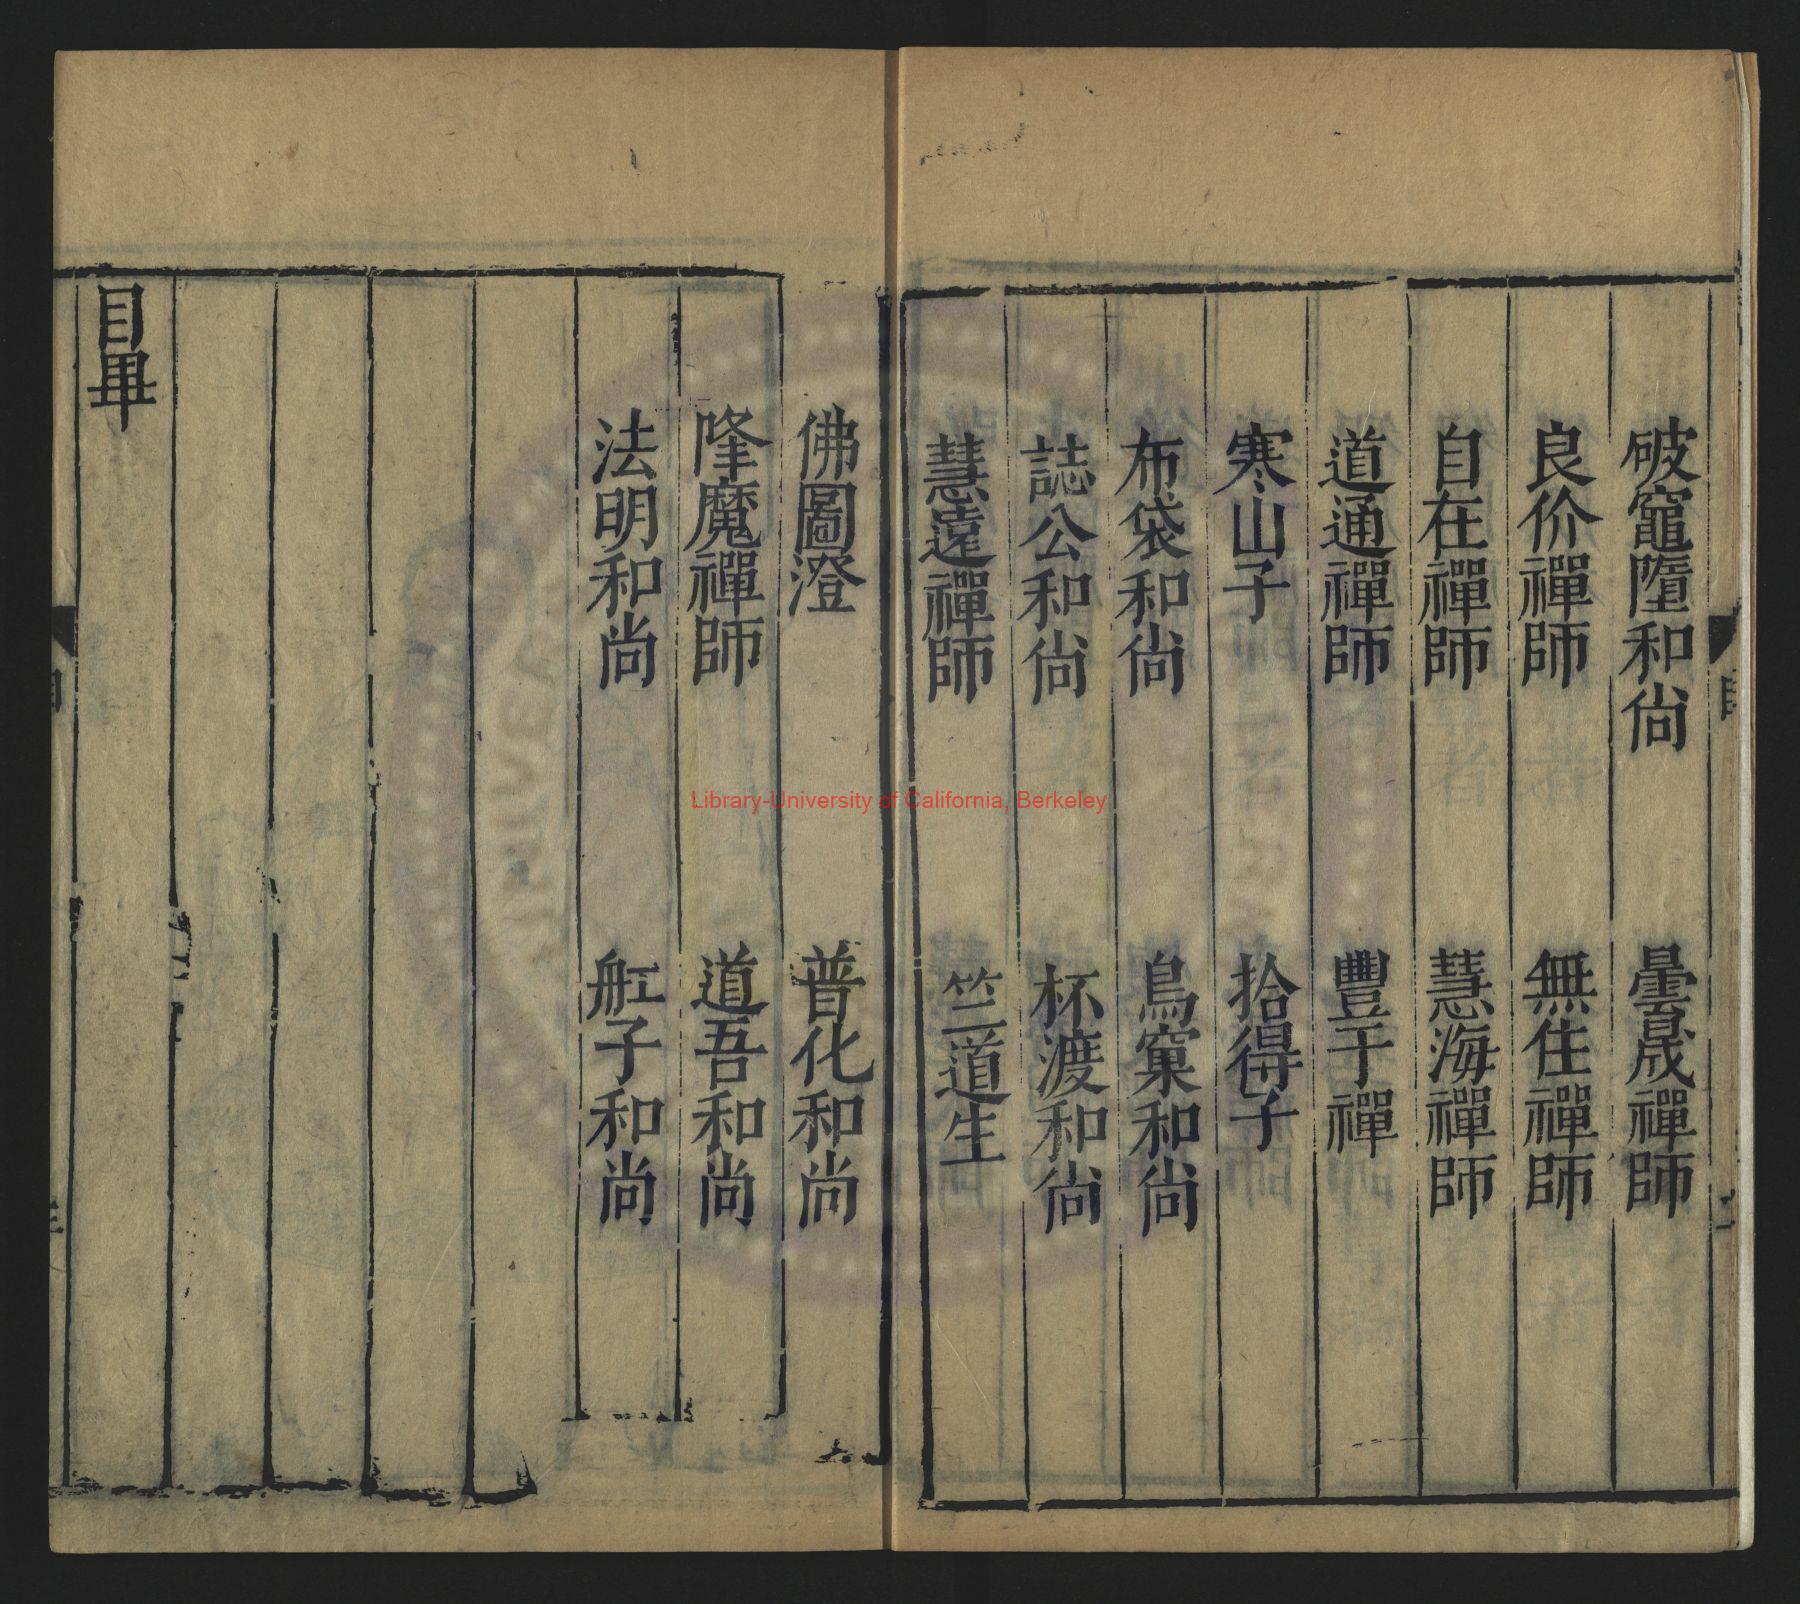 破竈墮和尙　曇晟禪師
良价禪師　無住禪師
自在禪師　慧海禪師
道通禪師　豐干禪
寒山子　拾得子
布袋和尙　鳥窠和尙
誌公和尙　杯渡和尙
慧遠禪師　竺道生
佛圖澄　普化和尚
降魔禪師　道吾和尚
法明和尚　舡子和尚
目畢
Library-University of California, Berkeley